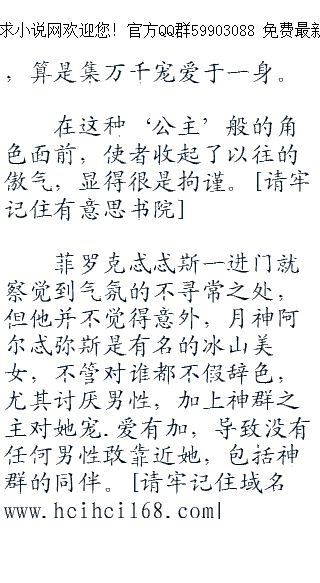 求小说网欢迎您！官方QQ群59903088 免费最新
，算是集万千宠爱于一身。
在这种‘公主’般的角
色面前，使者收起了以往的
傲气，显得很是拘谨。[请牢
记住有意思书院]
菲罗克忒忒斯一进门就
察觉到气氛的不寻常之处，
但他并不觉得意外，月神阿
尔忒弥斯是有名的冰山美
女，不管对谁都不假辞色，
尤其讨厌男性，加上神群之
主对她宠.爱有加，导致没有
任何男性敢靠近她，包括神
群的同伴。[请牢记住域名
www.hcihci168.com]